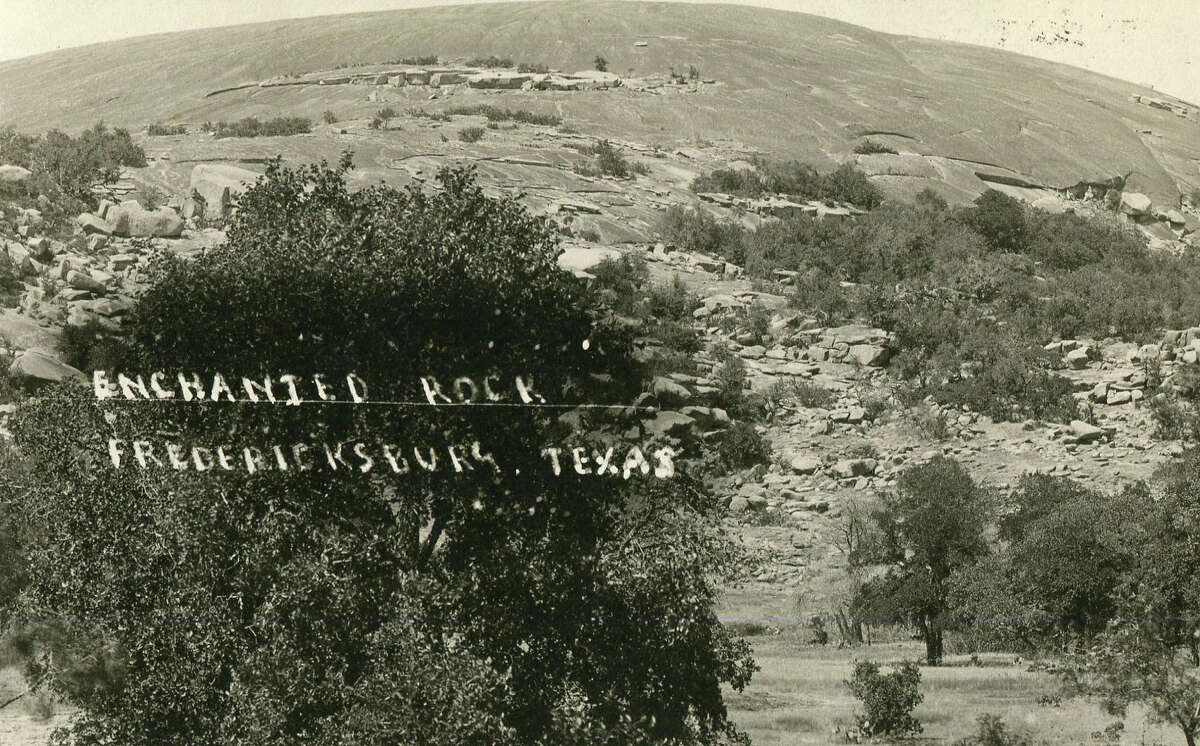 ENCHANTED ROCK
FREDERICKSBURG. TEXAS